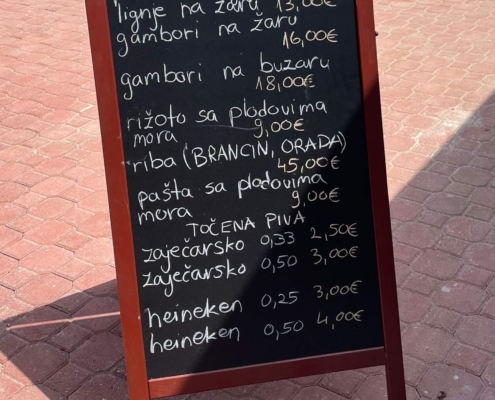 lignje na žaru 13,00€
gambori na žaru
16,00€
gambori na buzaru
18,00€
rižoto sa plodovima
mora 9,00€
riba (BRANCIN, ORADA)
45,00€
pašta sa plodovima
mora 9,00€
TOČENA PIVA
zaječarsko 0,33 2,50€
zaječarsko 0,50 3,00€
heineken 0,25 3,00€
heineken 0,50 4,00€